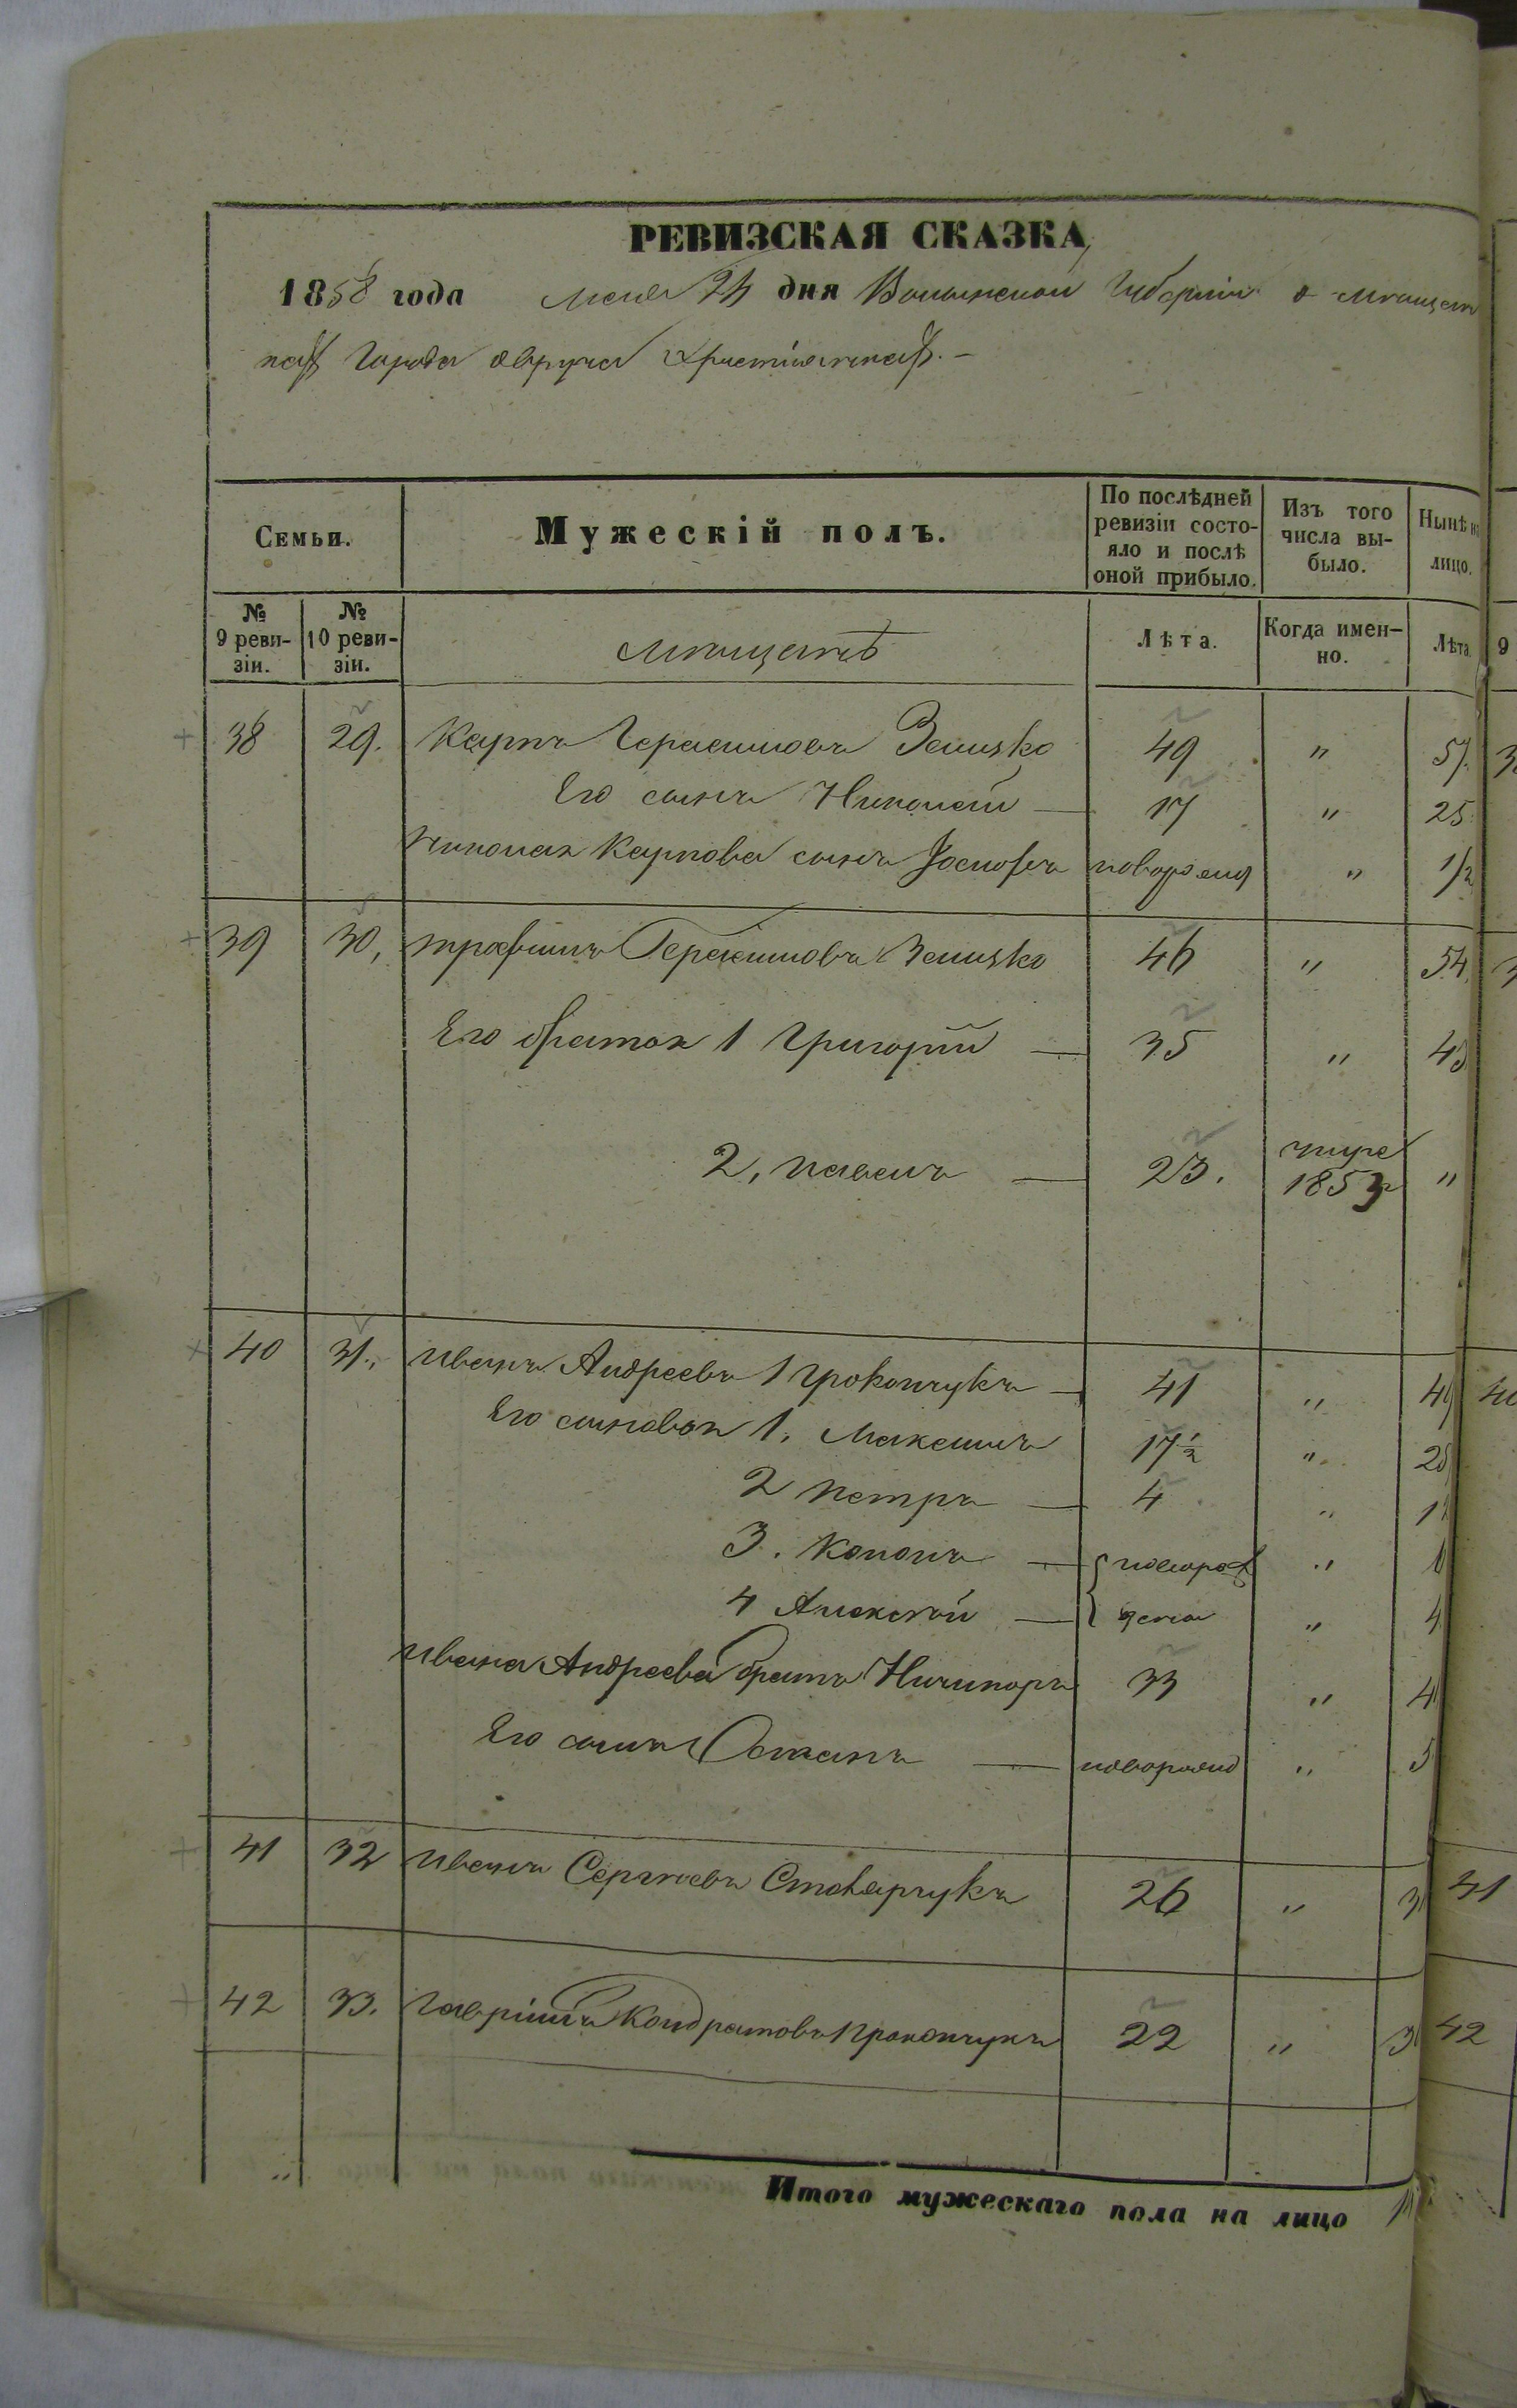 РЕВИЗСКАЯ СКАЗКА,
1858 года Маія 24 дня Волынской Губерніи о мѣщан
нахъ Города Овруча Христіанахъ.-
Семьи.
Мужескій полъ.
По послѣдней ревизіи состо-
яло и послѣ
оной прибыло.
Изъ того
числа вы-
было.
Нынѣ на
лицо.
№
9 реви-
зіи.
№
10 реви-
зіи.
мѣщанѣ
Лѣта.
Когда имен-
но.
Лѣта.
38 29. Карпъ Герасимовъ 49 " 57.
Его сынъ Николай — 17 " 25
Николая Карпова сынъ Іосифъ новорожд " 1/2
39 30, Трофимъ Герасимовъ 46 " 54.
Его братья 1 Григорій — 35 " 43
2, Павелъ — 23. умре 1853 "
40 31., Иванъ Андреевъ Прокопчукъ — 41 " 49
Его сыновья 1. Максимъ 17½ " 25
2 Петръ — 4 "
3. Кононъ — новорож "
4 Алексѣй — дена " 4
Ивана Андреева братъ Ничипоръ 33 " 4
Его сынъ Степанъ — новорожд " 5
41 32 Иванъ Сергѣевъ Столярчукъ 26 " 3
42 33. Гавріилъ Кондратовъ Прокопчукъ 22 " 3
Итого мужескаго пола на лицо
9
40
41
42